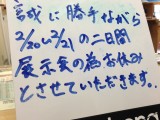 誠に勝手ながら
2/20㈪2/21の二日間
展示会の為お休み
とさせていただきます。